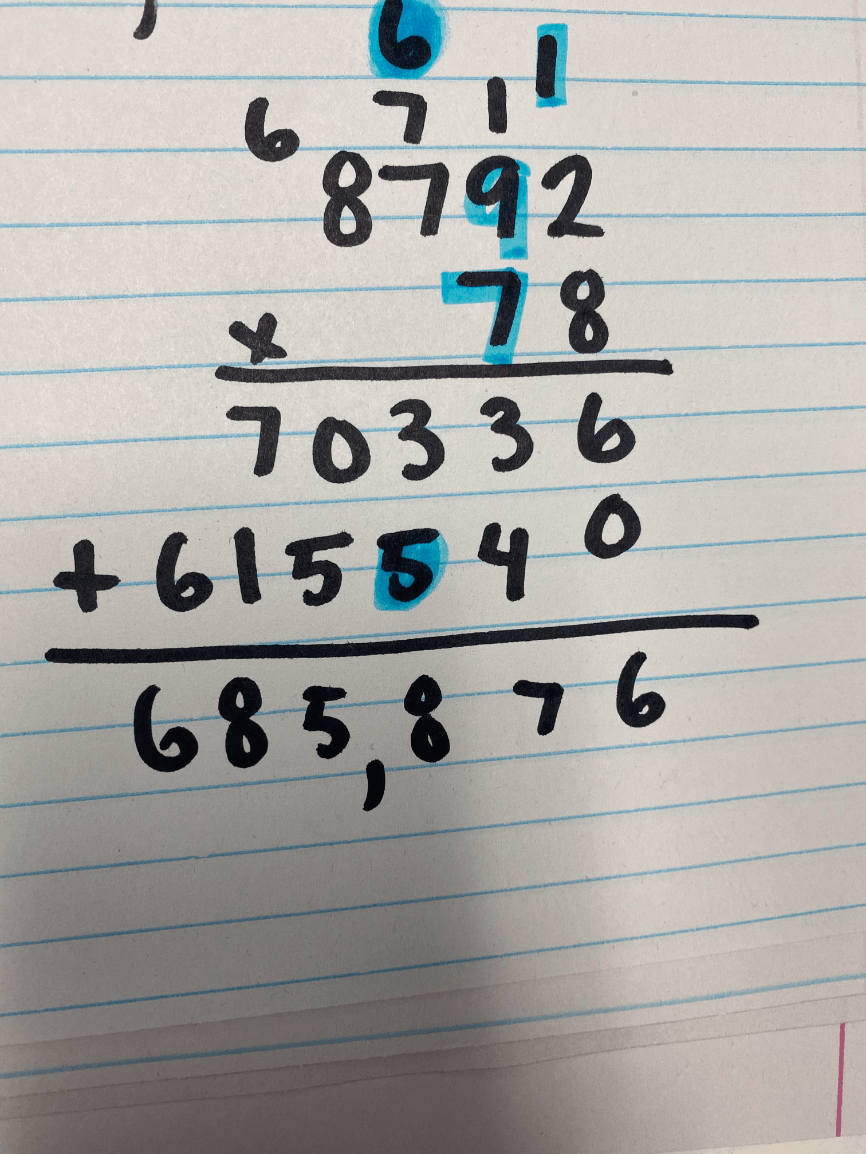 ,
6 1
6 7 1
8792
x 78
70336
+ 615540
685,876